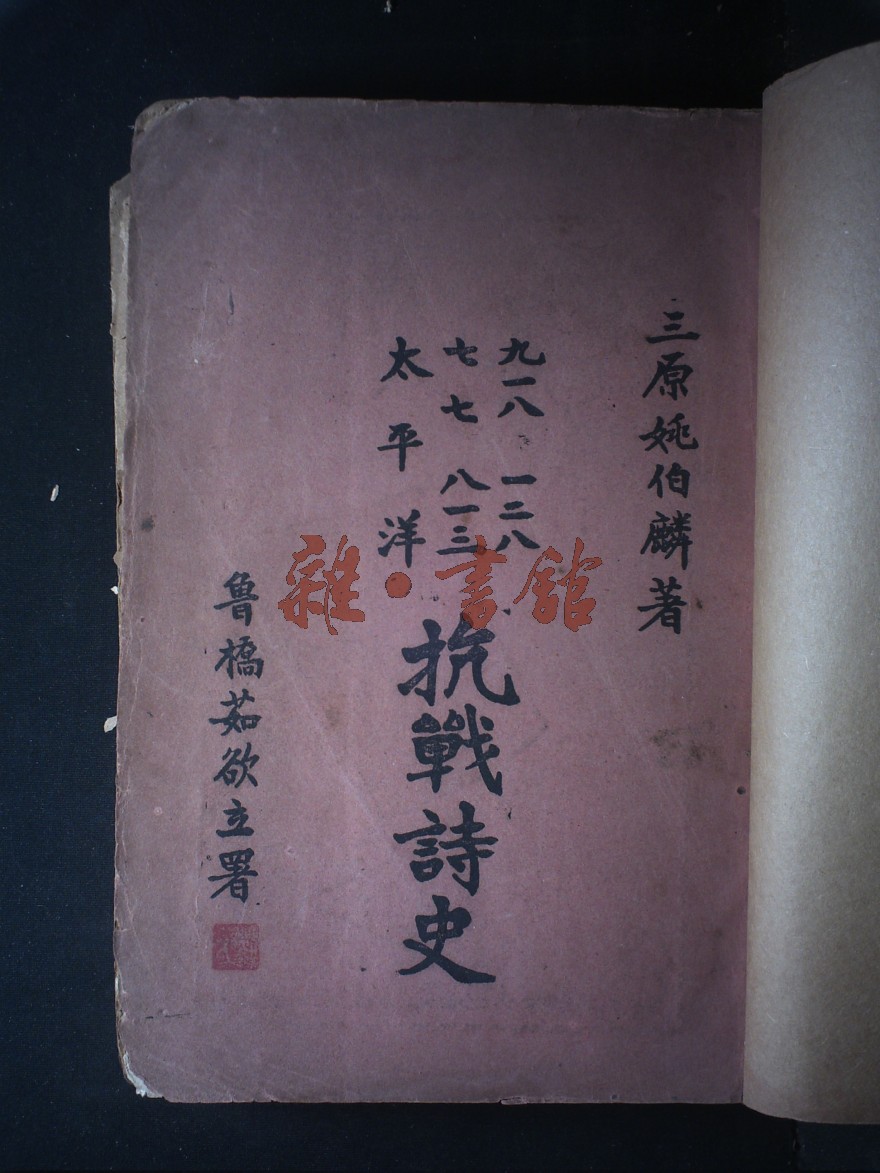 三原姚伯麟著
九一八 一二八
七七 八一三
太平洋
抗戰詩史
魯橋茹欲立署
雜·書館